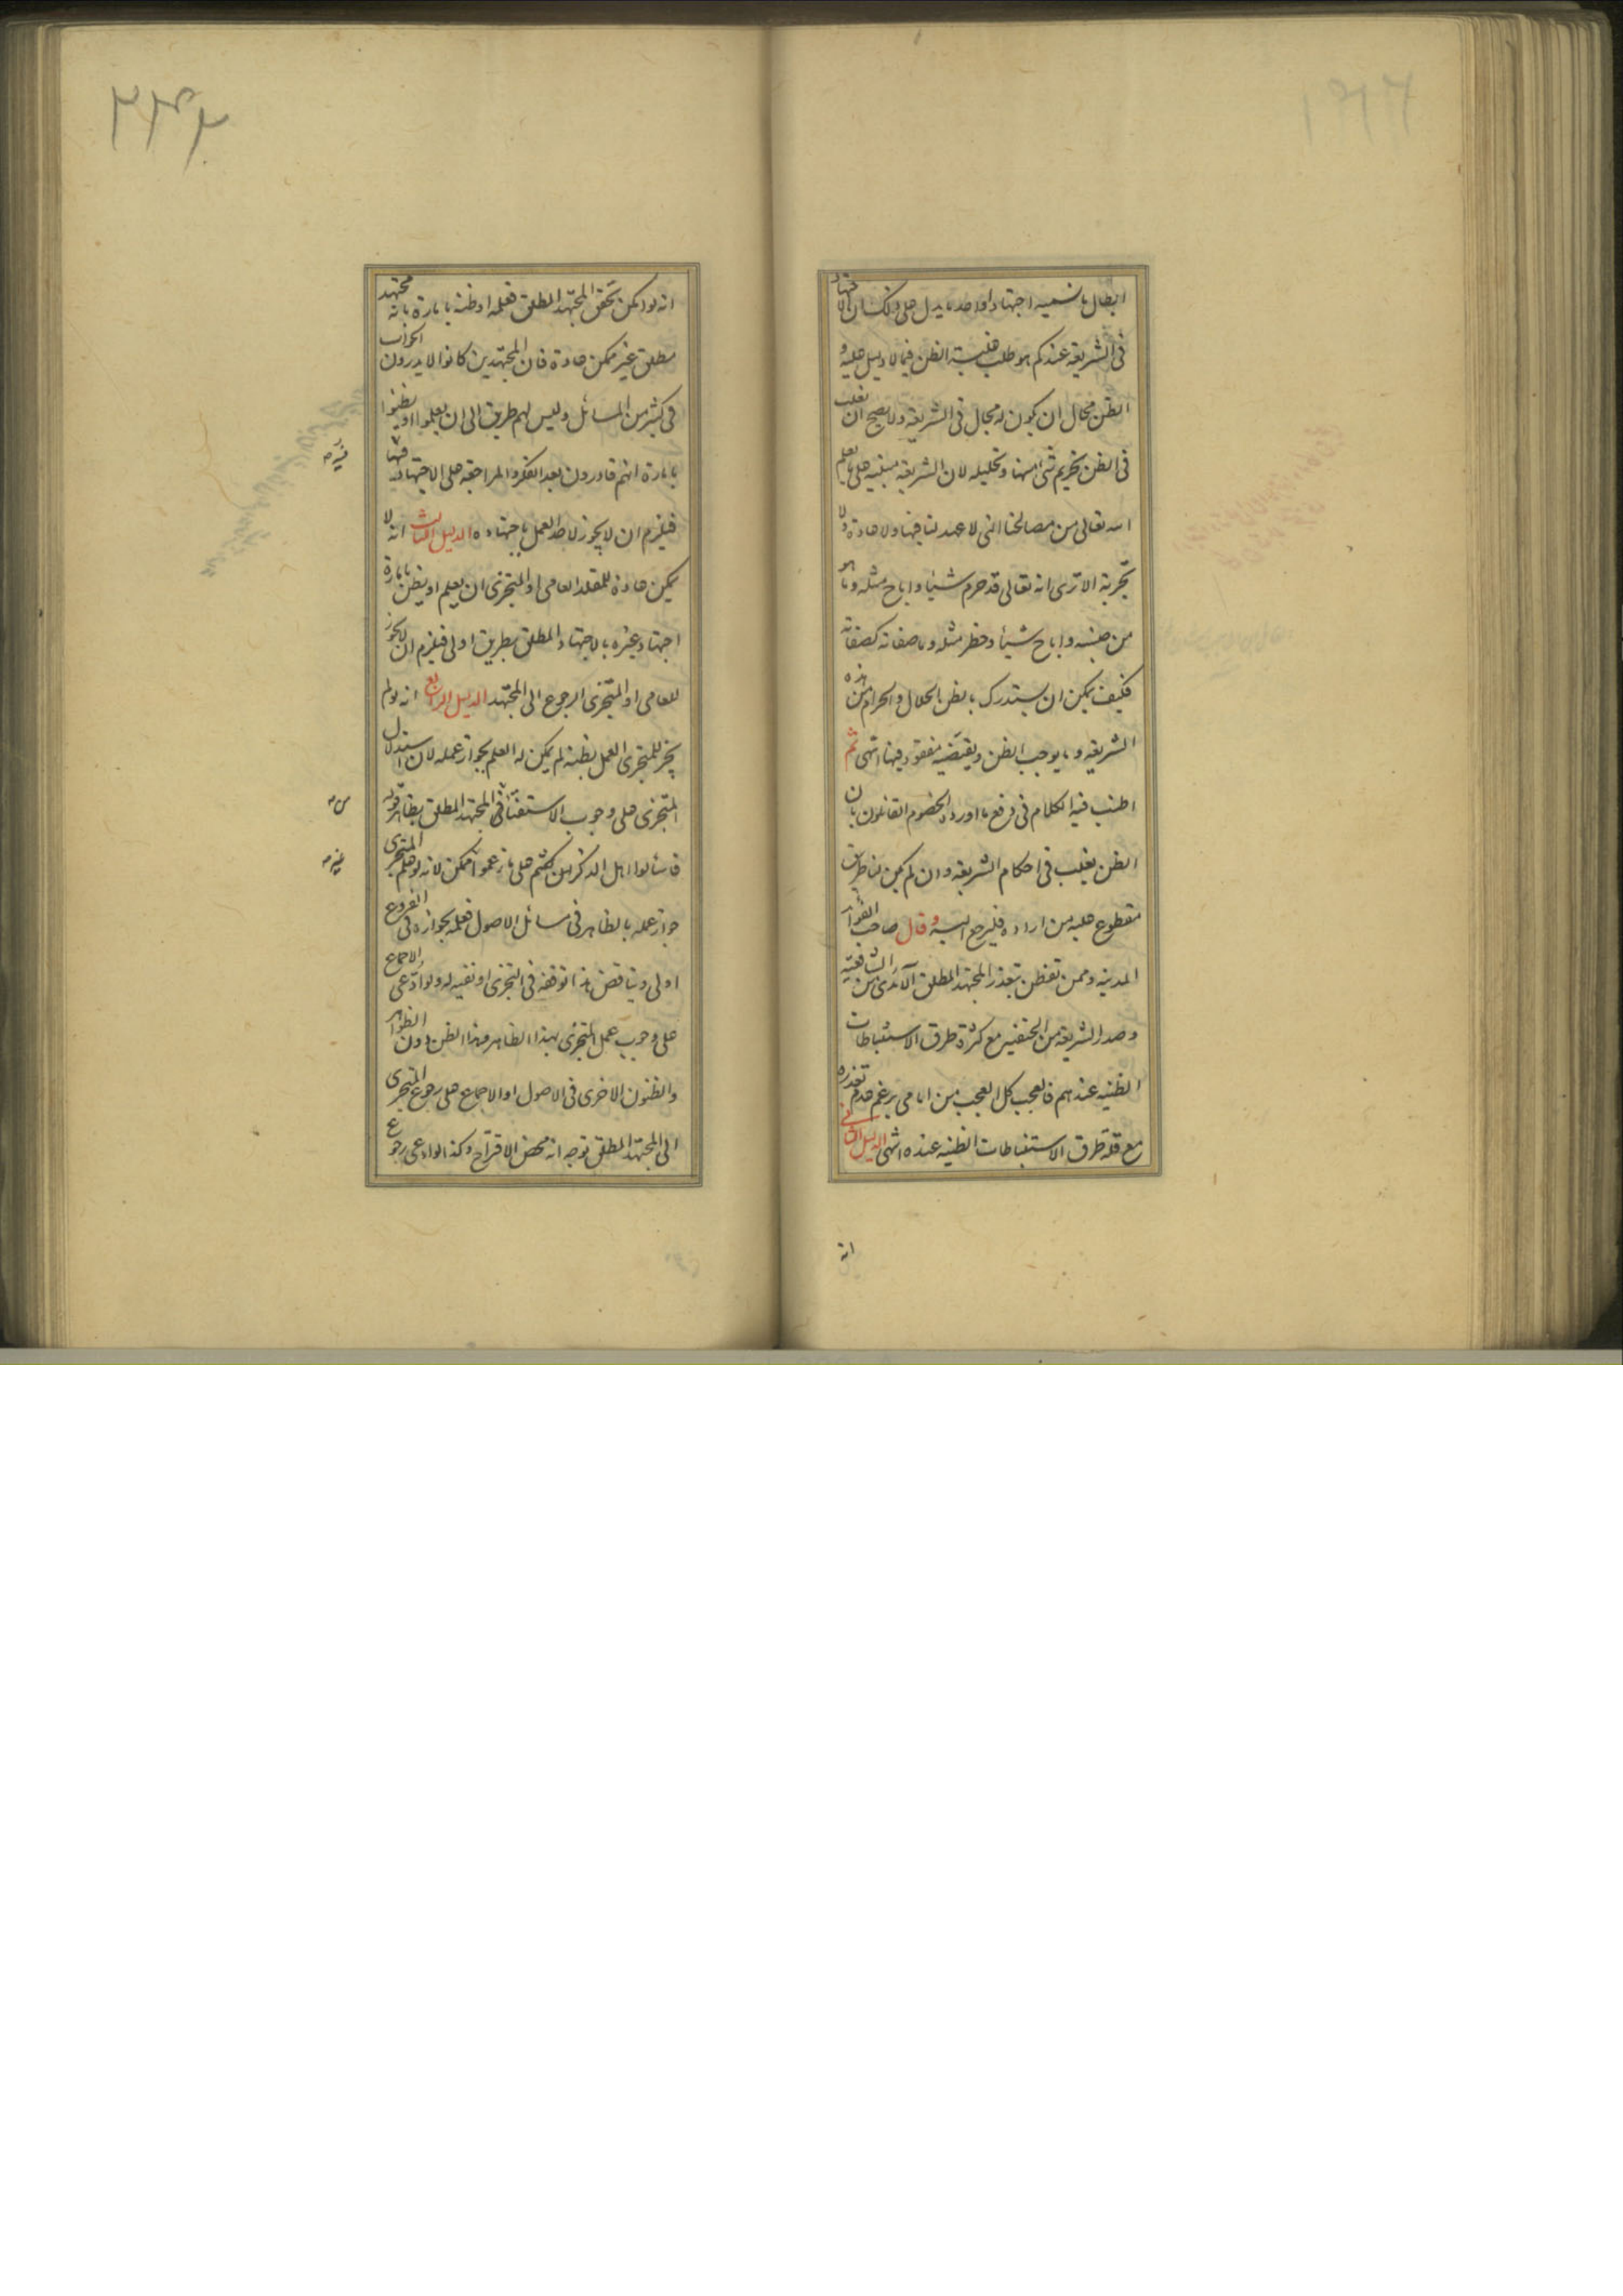 ابطال ما نسميه اجتهادا واحد ما يدل على ذلك ان الاجتهاد
في الشريعه عندكم هو طلب غلبة الظن فيما لا دليل عليه و
الظن محال ان يكون له مجال في الشريعه ولا يصح ان يغلب
في الظن تحريم شئ منها وتحليله لان الشريعه مبنيه على ما يعلم
الله تعالى من مصالحنا التي لا عهد لنا فيها ولا عادة ولا
تجربة الا ترى انه تعالى قد حرم شيئا واباح مثله وما هو
من جنسه واباح شيئا وحظر مثله وما صفاته كصفاته
فكيف يمكن ان يستدرك بالظن الحلال والحرام من هذه
الشريعه وما يوجب الظن ويقتضيه مفقود فيها انتهى ثم
اطنب فيه الكلام في دفع ما اورد الخصوم القائلون بان
الظن يغلب في احكام الشريعه وان لم يكن لنا طريق
مقطوع عليه من اراده فليرجع اليه وقال صاحب الفوائد
المدنيه وممن تفطن بتعذر المجتهد المطلق الآمدي من الشافعيه
وصدر الشريعه من الحنفيه مع كثرة طرق الاستنباطات
الظنيه عندهم فالعجب كل العجب من امامي يزعم عدم تعذره
مع قلة طرق الاستنباطات الظنيه عنده انتهى الدليل الثاني
انه
٢٣٢
انه لو امكن تحقق المجتهد المطلق فعلمه او ظنه بامارة بانه مجتهد
مطلق غير ممكن عادة فان المجتهدين كانوا لا يدرون الجواب
في كثير من المسائل وليس لهم طريق الى ان يعلموا او يظنوا
بامارة انهم قادرون بعد الفكر والمراجعة على الاجتهاد فيها
فيلزم ان لا يجوز لاحد العمل باجتهاده الدليل الثالث انه لا
يمكن عادة للمقلد العامي او المتجزي ان يعلم او يظن بامارة
اجتهاد غيره بالاجتهاد المطلق بطريق اولى فيلزم ان لا يجوز
للعامي او المتجزي الرجوع الى المجتهد الدليل الرابع انه لو لم
يجز للمتجزي العمل بظنه لم يمكن له العلم بجواز عمله لان استدلال
المتجزي على وجوب الاستفتاء في المجتهد المطلق بظاهر قوله
فاسألوا اهل الذكر ان كنتم على ما زعموا ممكن لانه لو علم المتجزي
جواز عمله بالظاهر في مسائل الاصول فعلمه بجوازه في الفروع
اولى ويناقض هذا توقفه في التجزي او نفيه له ولو ادعى الاجماع
على وجوب عمل المتجزي بهذا الظاهر وهذا الظن دون الظواهر
والظنون الاخرى في الاصول او الاجماع على رجوع المتجزي
الى المجتهد المطلق توجه انه محض الاقتراح وكذا لو ادعى رجوع